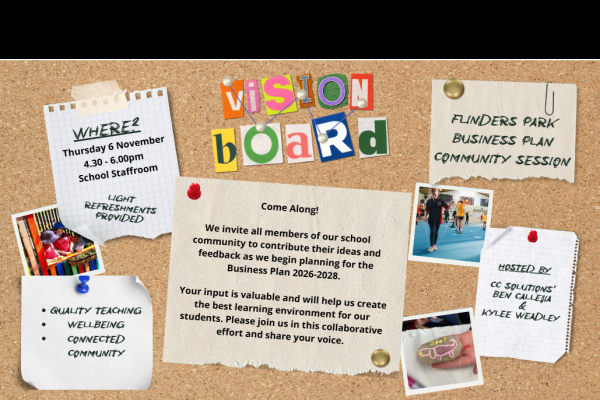 VISION
bOaRd
WHERE?
Thursday 6 November
4.30 - 6.00pm
School Staffroom
LIGHT
REFRESHMENTS
PROVIDED
FLINDERS PARK
BUSINESS PLAN
COMMUNITY SESSION
Come Along!
We invite all members of our school
community to contribute their ideas and
feedback as we begin planning for the
Business Plan 2026-2028.
Your input is valuable and will help us create
the best learning environment for our
students. Please join us in this collaborative
effort and share your voice.
• QUALITY TEACHING
• WELLBEING
• CONNECTED
COMMUNITY
HOSTED BY
CC SOLUTIONS'
BEN CALLEJA
&
KYLEE WEADLEY